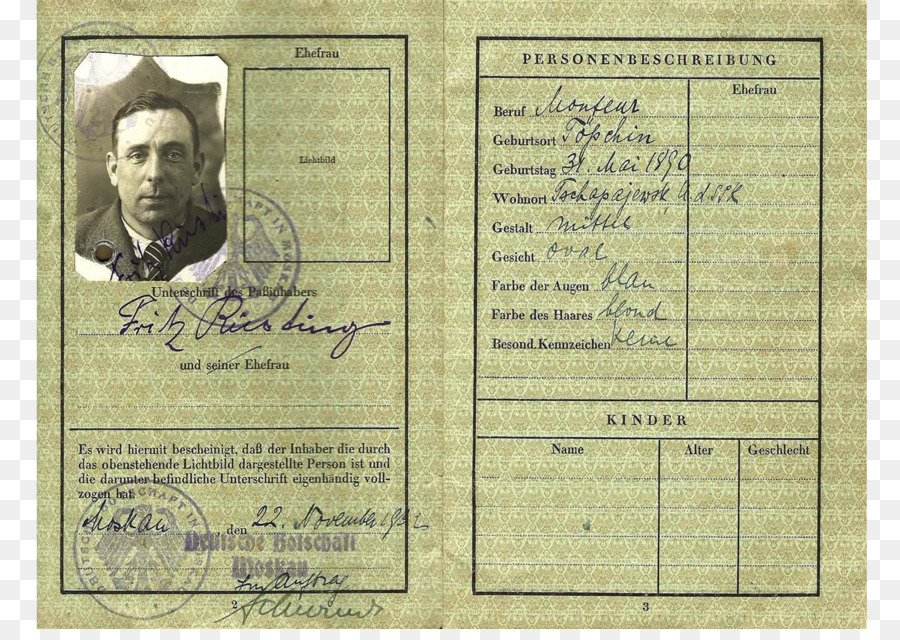 Ehefrau
Lichtbild
Unterschrift des Paßinhabers
Fritz
und seiner Ehefrau
Es wird hiermit bescheinigt, daß der Inhaber die durch
das obenstehende Lichtbild dargestellte Person ist und
die darunter befindliche Unterschrift eigenhändig voll-
zogen hat.
Moskau den 22. November
Deutsche Botschaft
Moskau
Im Auftrag
2
PERSONENBESCHREIBUNG
Ehefrau
Beruf Monteur
Geburtsort Töpchin
Geburtstag 31. Mai 1890
Wohnort Tschapajewsk
Gestalt mittel
Gesicht oval
Farbe der Augen blau
Farbe des Haares blond
Besond. Kennzeichen keine
KINDER
Name Alter Geschlecht
3